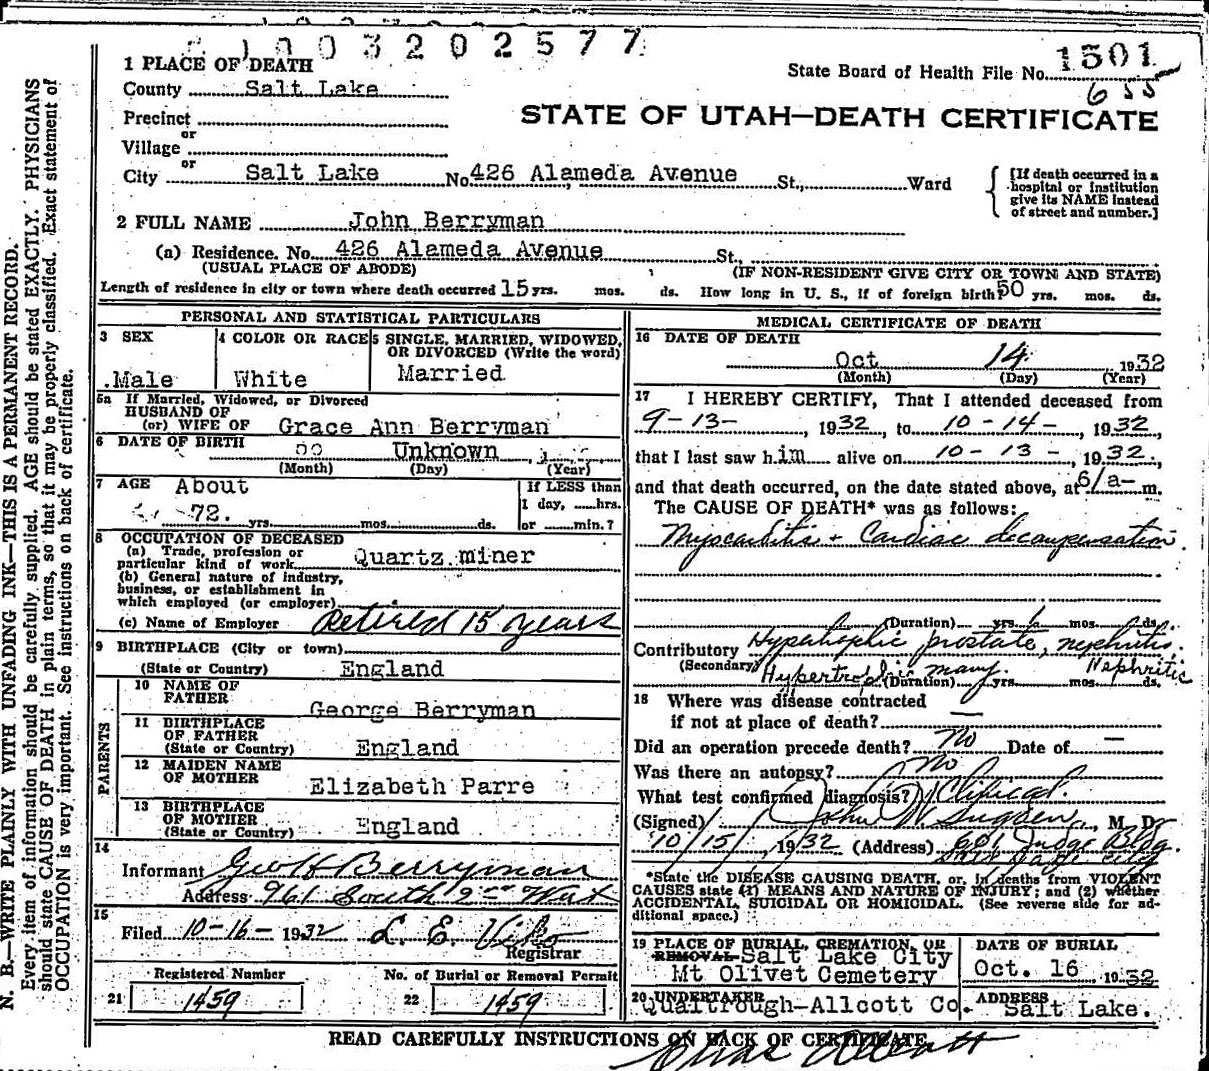 1003202577
1301
State Board of Health File No.
655
STATE OF UTAH—DEATH CERTIFICATE
1 PLACE OF DEATH
County Salt Lake
Precinct
or
Village
or
City Salt Lake No. 426 Alameda Avenue St., Ward
{ [If death occurred in a hospital or Institution give its NAME instead of street and number.]
2 FULL NAME John Berryman
(a) Residence. No. 426 Alameda Avenue St.
(USUAL PLACE OF ABODE) (IF NON-RESIDENT GIVE CITY OR TOWN AND STATE)
Length of residence in city or town where death occurred 15 yrs. mos. ds. How long in U. S., if of foreign birth? 50 yrs. mos. ds.
PERSONAL AND STATISTICAL PARTICULARS
3 SEX
Male
4 COLOR OR RACE
White
5 SINGLE, MARRIED, WIDOWED, OR DIVORCED (Write the word)
Married
5a If Married, Widowed, or Divorced
HUSBAND OF
(or) WIFE OF Grace Ann Berryman
6 DATE OF BIRTH Unknown
(Month) (Day) (Year)
7 AGE About
72. yrs. mos. ds.
If LESS than
1 day, hrs.
or min.?
8 OCCUPATION OF DECEASED
(a) Trade, profession or
particular kind of work Quartz miner
(b) General nature of industry,
business, or establishment in
which employed (or employer)
(c) Name of Employer Retired 15 years
9 BIRTHPLACE (City or town)
(State or Country) England
PARENTS
10 NAME OF
FATHER George Berryman
11 BIRTHPLACE
OF FATHER
(State or Country) England
12 MAIDEN NAME
OF MOTHER Elizabeth Parre
13 BIRTHPLACE
OF MOTHER
(State or Country) England
14
Informant Geo H Berryman
Address 961 South 2nd West
15
Filed 10-16- 1932 L. E. Viko
Registrar
Registered Number No. of Burial or Removal Permit
21 1459 22 1459
MEDICAL CERTIFICATE OF DEATH
16 DATE OF DEATH
Oct 14 1932
(Month) (Day) (Year)
17 I HEREBY CERTIFY, That I attended deceased from
9-13-, 1932, to 10-14-, 1932,
that I last saw him alive on 10-13-, 1932.,
and that death occurred, on the date stated above, at 6/a-m.
The CAUSE OF DEATH* was as follows:
Myocarditis + Cardiac decompensation.
(Duration) yrs. mos. ds.
Contributory Hypertrophic prostate, nephritis.
(Secondary) Hypertrophic Nephritis
(Duration) many yrs. mos. ds.
18 Where was disease contracted
if not at place of death? —
Did an operation precede death? No Date of —
Was there an autopsy? No
What test confirmed diagnosis? Clinical.
(Signed) John W Sugden, M. D.
10/15/, 1932 (Address) 601 Judge Bldg.
Salt Lake City
*State the DISEASE CAUSING DEATH, or, in deaths from VIOLENT
CAUSES state (1) MEANS AND NATURE OF INJURY; and (2) whether
ACCIDENTAL, SUICIDAL OR HOMICIDAL. (See reverse side for ad-
ditional space.)
19 PLACE OF BURIAL, CREMATION, OR
REMOVAL Salt Lake City
Mt Olivet Cemetery
DATE OF BURIAL
Oct. 16 1932
20 UNDERTAKER
Qualtrough-Allcott Co.
ADDRESS
Salt Lake.
READ CAREFULLY INSTRUCTIONS ON BACK OF CERTIFICATE
Allcott
N. B.—WRITE PLAINLY WITH UNFADING INK—THIS IS A PERMANENT RECORD.
Every item of information should be carefully supplied. AGE should be stated EXACTLY. PHYSICIANS
should state CAUSE OF DEATH in plain terms, so that it may be properly classified. Exact statement of
OCCUPATION is very important. See instructions on back of certificate.